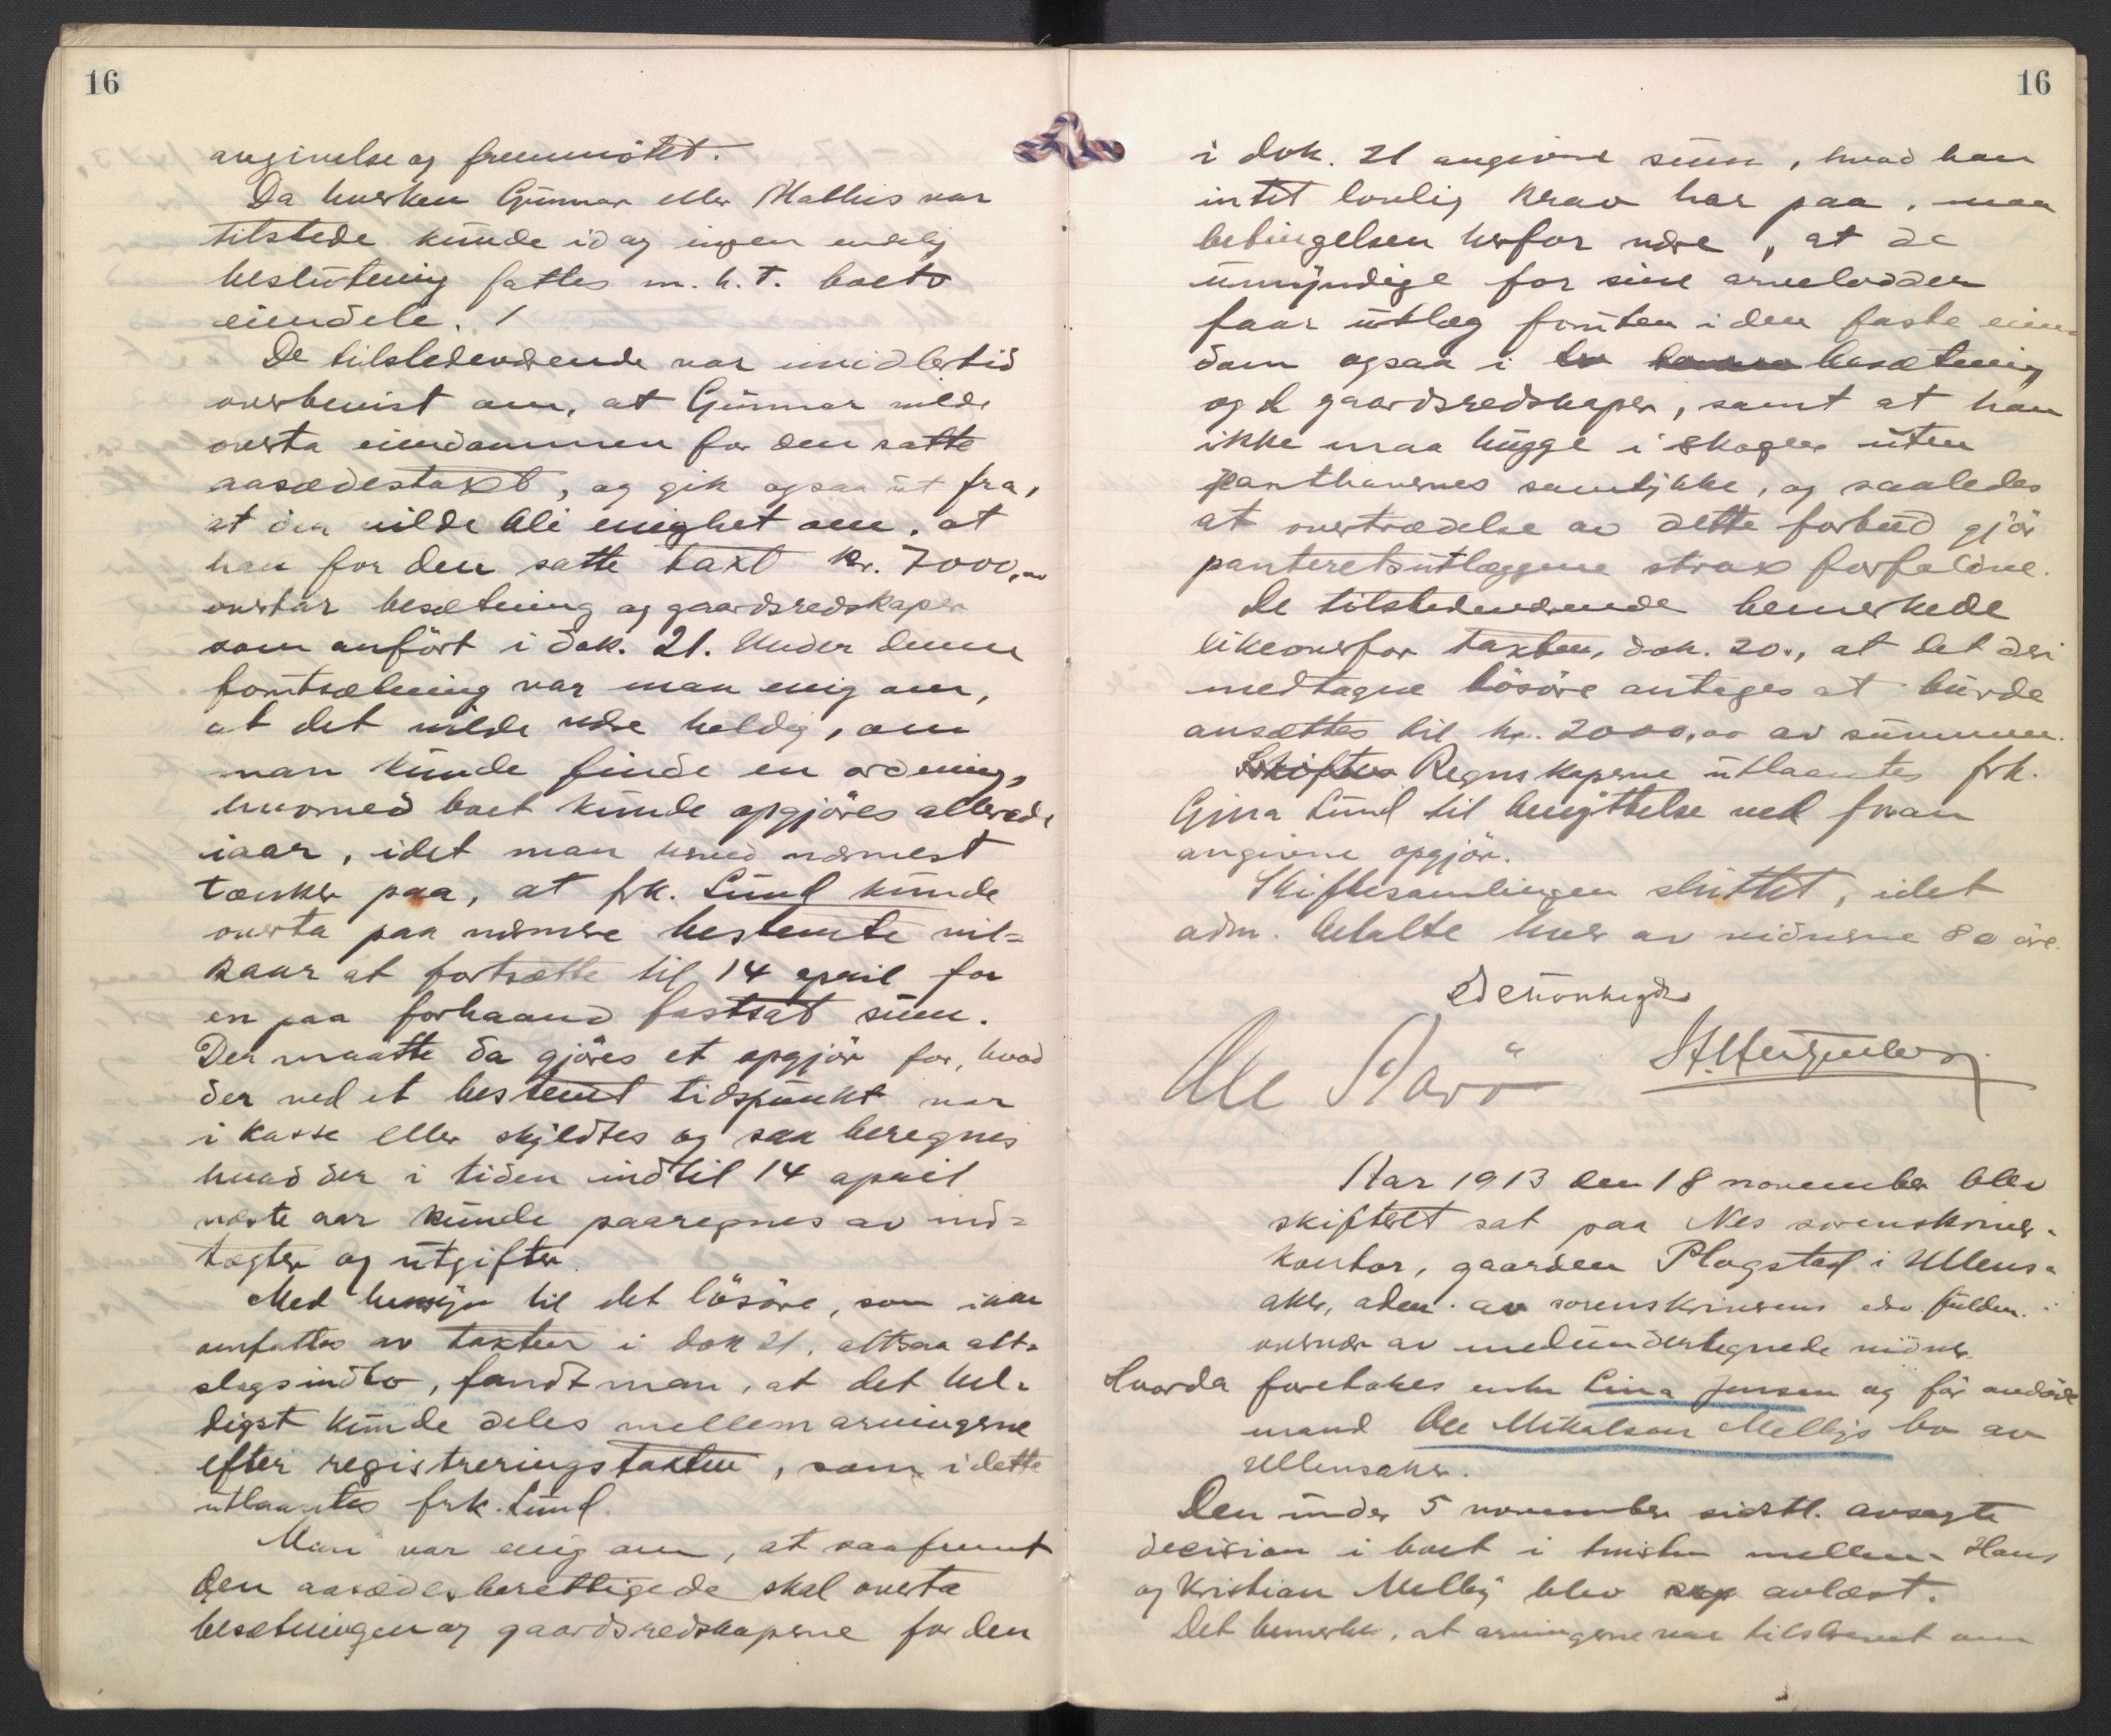 16
angivelse og fremmötet.
Da hverken Gunnar eller Mathis var
tilstede kunde idag ingen endelig
beslutning fattes m. h. t. boets
eiendele. /
De tilstedeværende var imidlertid
overbevist om, at Gunnar vilde
overta eiendommen for den satte
aasædestaxt, og gik ogsaa ut fra,
at der vilde bli enighet om, at
han for den satte taxt kr. 7000,00
overtar besætning og gaardsredskaper
som anført i dok. 21. Under denne
forutsætning var man enig om,
at det vilde være heldig, om
man kunde finde en ordning,
hvorved boet kunde opgjöres allerede
iaar, idet man herved nærmest
tænker paa, at frk. Lund kunde
overta paa nærmere bestemte vil=
kaar at fortsætte til 14 april for
en paa forhaand fastsat sum.
Der maatte da gjöres et opgjör for, hvad
der ved et bestemt tidspunkt var
i kasse eller skyldtes og saa beregnes
hvad der i tiden indtil 14 april
næste aar kunde paaregnes av ind=
tægter og utgifter.
Med hensyn til det lösöre, som ikke
omfattes av taxten i dok 21, altsaa alt=
slags indbo, fandt man, at det hel=
digst kunde deles mellem arvingerne
efter registreringstaxten, som i dette
utlaantes frk. Lund.
Man var enig om, at saafremt
den aasædesberettigede skal overta
besætningen og gaardsredskaperne for den
16
i dok. 21 angivne sum, hvad han
intet lovlig krav har paa, maa
betingelsen herfor være, at de
umyndige for sine arvelodder
faar utlæg foruten i den faste eien=
dom ogsaa i besætning
og gaardsredskaper, samt at han
ikke maa hugge i skogen uten
panthavernes samtykke, og saaledes
at overtrædelse av dette forbud gjör
panteretsutlæggene strax forfaldne.
De tilstedeværende bemerkede
likeoverfor taxten, dok. 20, at det deri
medtagne lösöre antages at burde
ansættes til kr. 2000,00 av summen.
Skiftes Regnskaperne utlaantes frk.
Gina Lund til benyttelse ved foran
angivne opgjör.
Skiftesamlingen sluttet, idet
adm. betalte hver av vidnerne 80 öre.
Ole
Aar 1913 den 18 november blev
skifteret sat paa Nes sorenskriver=
kontor, gaarden Plogstad i Ullens=
aker, adm. av sorenskriverens edsv. fuldm. i
overvær av medundertegnede vidner.
Hvorda foretokes enke Lina Jensen og før avdöde
mand Ole Mikalsen Melbys bo av
Ullensaker.
Den under 5 november sidstl. avsagte
decision i boet i tvisten mellem Hans
og Kristian Melby blev avlæst.
Det bemerkes, at arvingerne var tilskrevet om